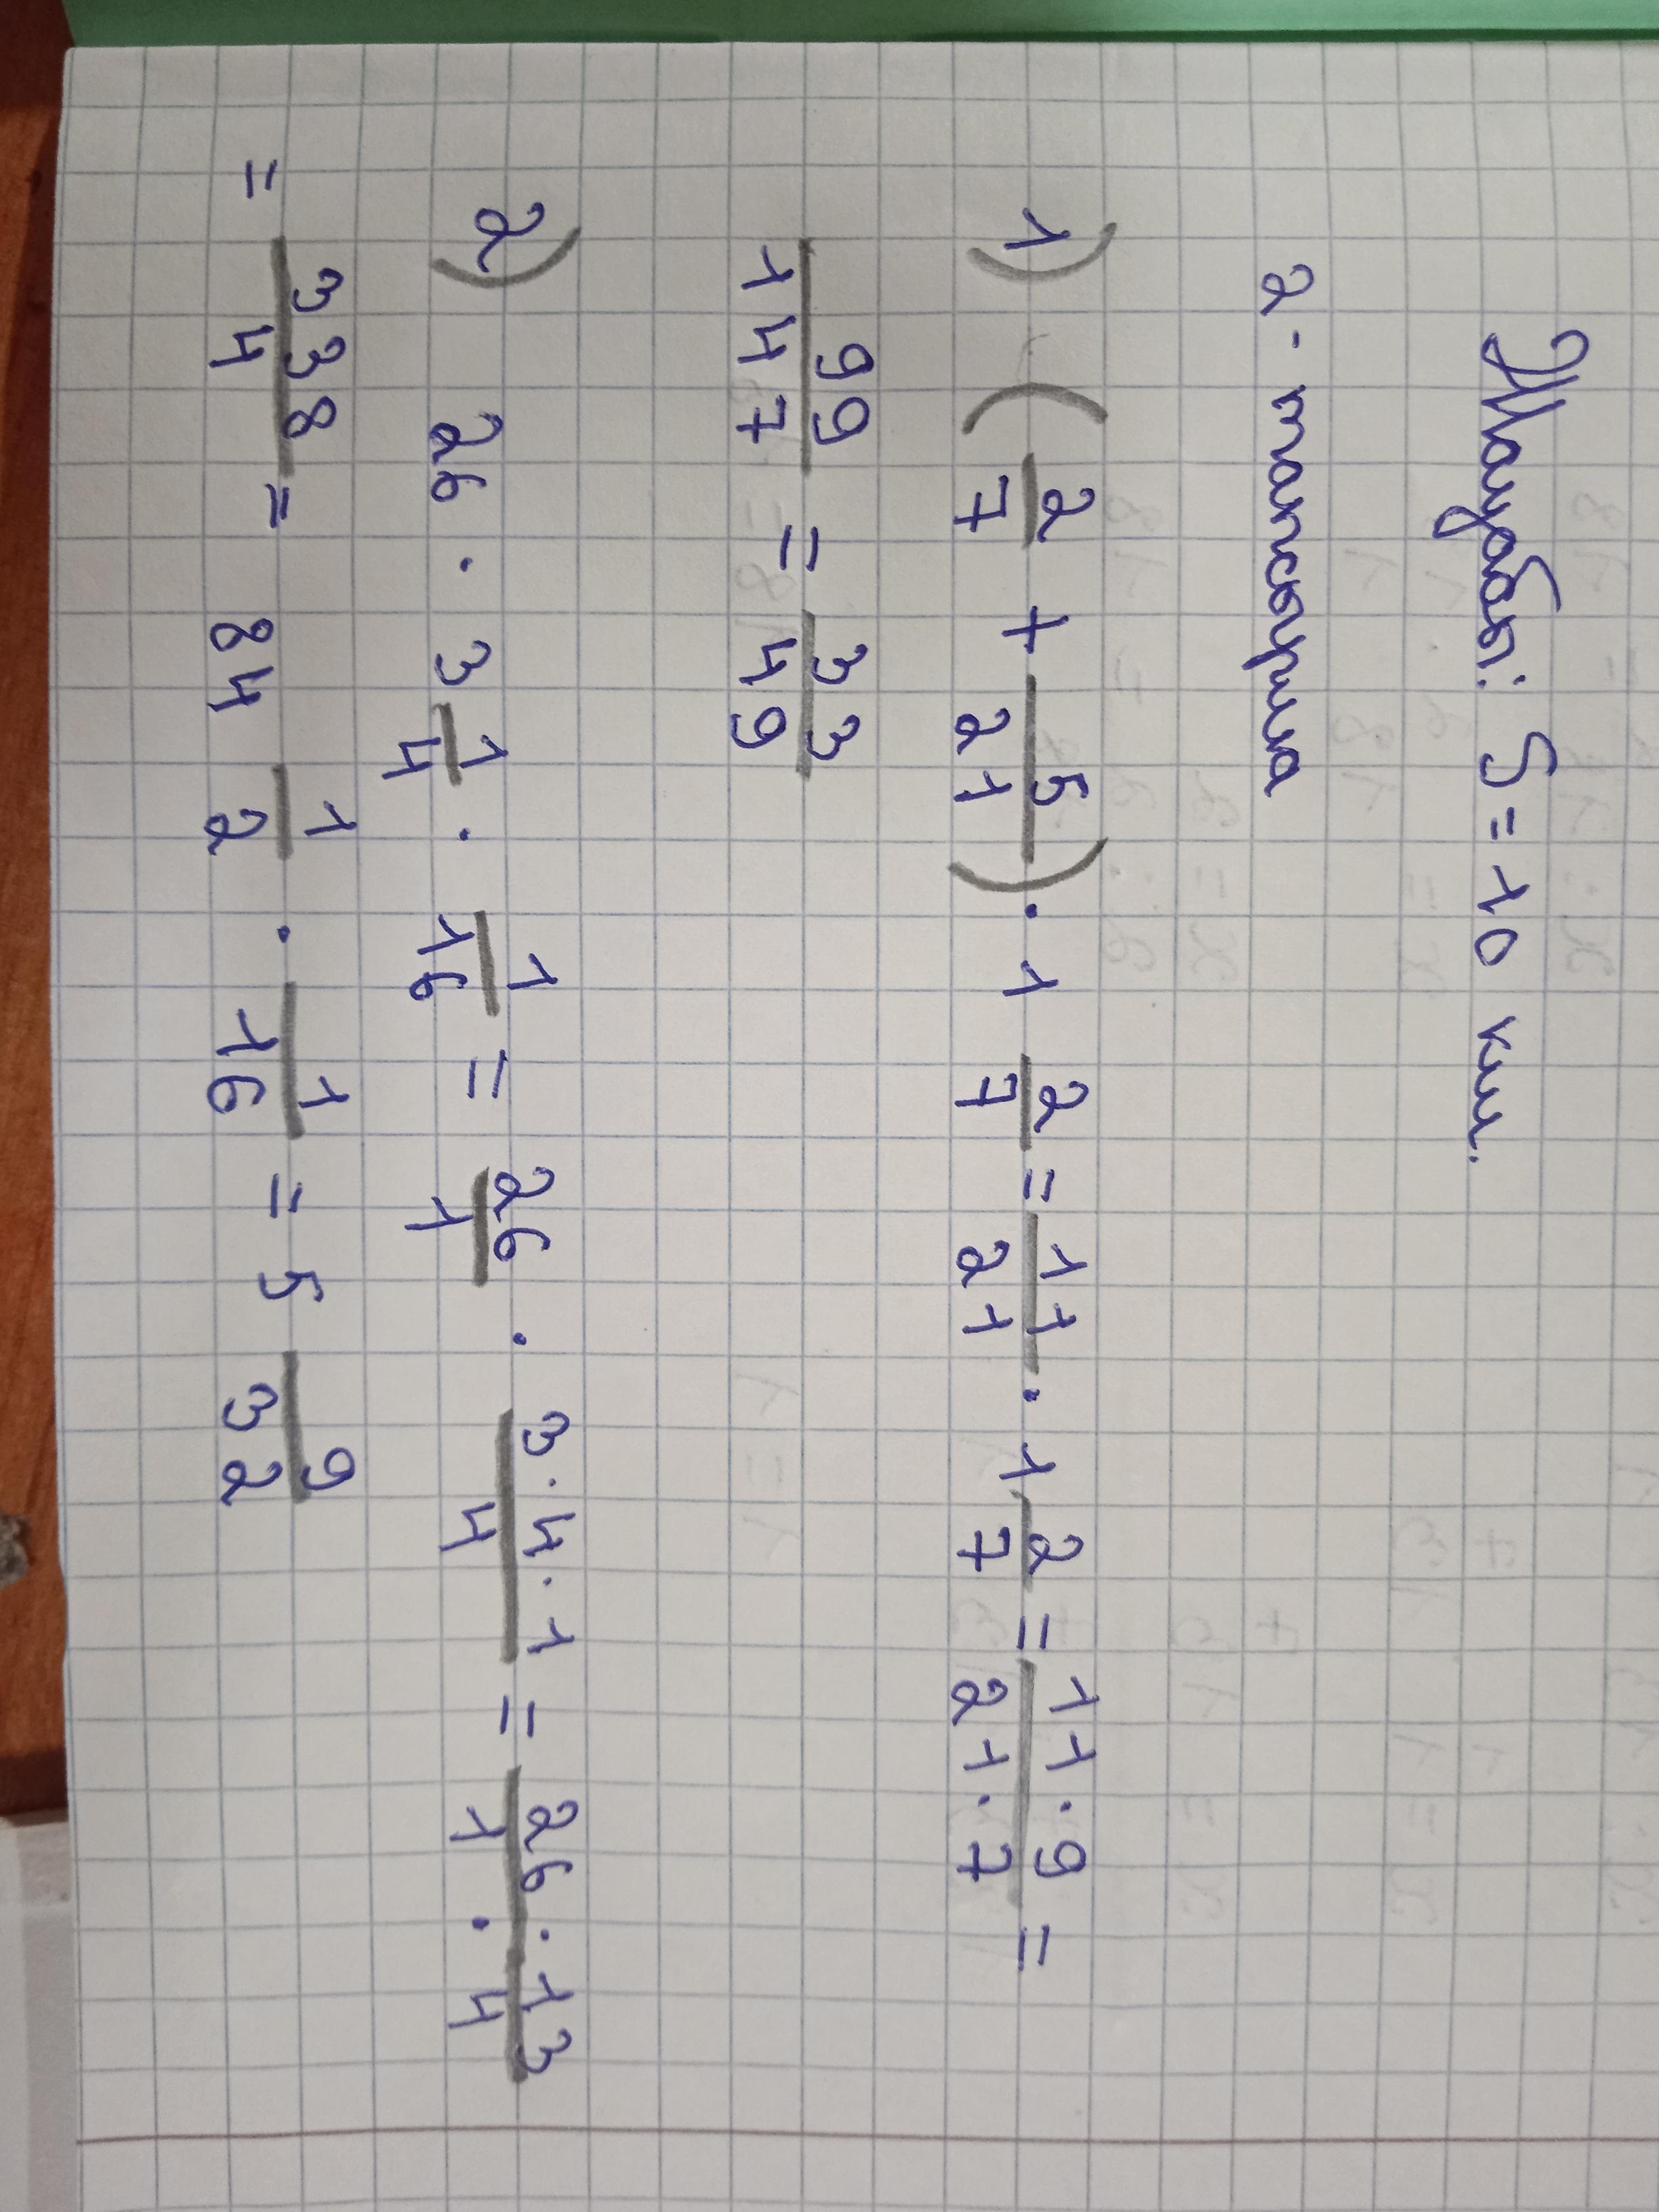 Жауабы: S = 10 км.
2 - тапсырма
1) (2/7 + 5/21) · 1 2/7 = 11/21 · 1 2/7 = 11·9/21·7 =
99/147 = 33/49
2) 26 · 3 1/4 · 1/16 = 26/1 · 3·4·1/4 = 26·13/1·4
= 338/4 = 84 1/2 · 1/16 = 5 9/32